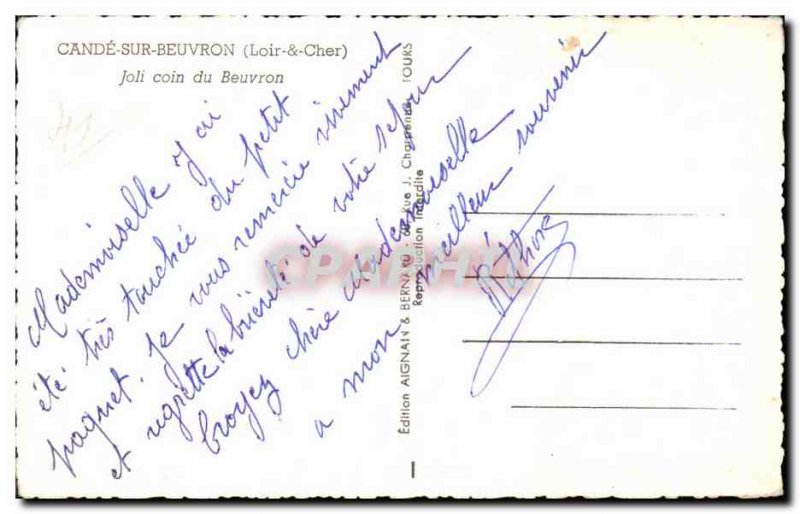 CANDÉ-SUR-BEUVRON (Loir-&-Cher)
Joli coin du Beuvron
Mademoiselle J'ai
été très touchée du petit
paquet. Je vous remercie vivement
et regrette la brièveté de votre séjour
Croyez chère Mademoiselle
a mon meilleur souvenir
Édition AIGNAIN & BERNARD - Rue J. Charpentier TOURS
Reproduction interdite
CPARAMA